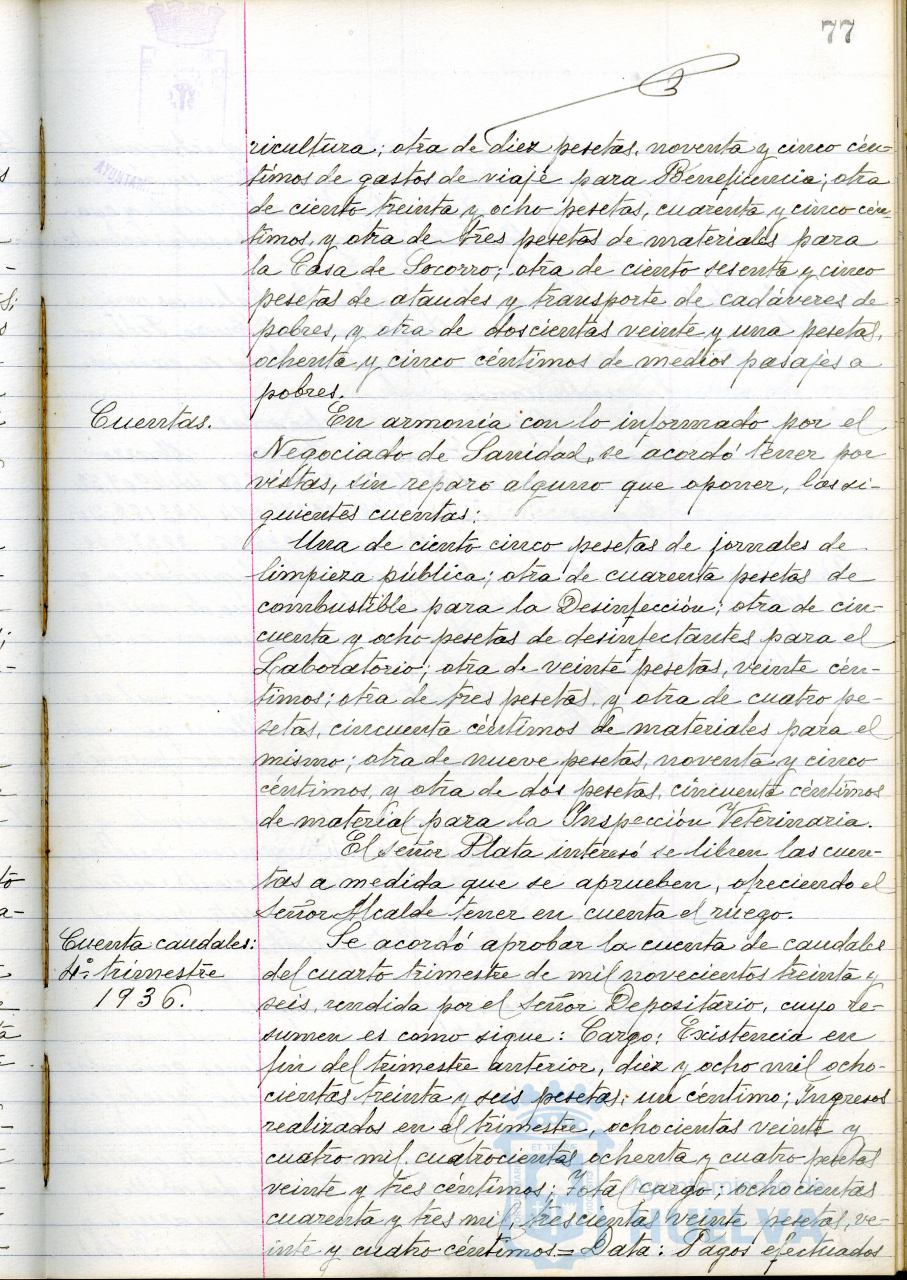 77
ricultura; otra de diez pesetas, noventa y cinco cén-
timos de gastos de viaje para Beneficencia; otra
de ciento treinta y ocho pesetas, cuarenta y cinco cén-
timos, y otra de tres pesetas de materiales para
la Casa de Socorro; otra de ciento sesenta y cinco
pesetas de ataudes y transporte de cadáveres de
pobres, y otra de doscientas veinte y una pesetas,
ochenta y cinco céntimos de medios pasajes a
pobres.
Cuentas.
En armonía con lo informado por el
Negociado de Sanidad, se acordó tener por
vistas, sin reparo alguno que oponer, las si-
guientes cuentas:
Una de ciento cinco pesetas de jornales de
limpieza pública; otra de cuarenta pesetas de
combustible para la Desinfección; otra de cin-
cuenta y ocho pesetas de desinfectantes para el
Laboratorio; otra de veinte pesetas, veinte cén-
timos; otra de tres pesetas, y otra de cuatro pe-
setas, cincuenta céntimos de materiales para el
mismo; otra de nueve pesetas, noventa y cinco
céntimos, y otra de dos pesetas, cincuenta céntimos
de material para la Inspección Veterinaria.
El señor Plata interesó se libren las cuen-
tas a medida que se aprueben, ofreciendo el
señor Alcalde tener en cuenta el ruego.
Cuenta caudales:
4º trimestre
1936.
Se acordó aprobar la cuenta de caudales
del cuarto trimestre de mil novecientos treinta y
seis, rendida por el señor Depositario, cuyo re-
sumen es como sigue: Cargo: Existencia en
fin del trimestre anterior, diez y ocho mil ocho-
cientas treinta y seis pesetas, un céntimo; Ingresos
realizados en el trimestre, ochocientas veinte y
cuatro mil, cuatrocientas ochenta y cuatro pesetas
veinte y tres céntimos; Total cargo; ochocientas
cuarenta y tres mil, trescientas veinte pesetas, ve-
inte y cuatro céntimos = Data: Pagos efectuados
Ayuntamiento de
HUELVA